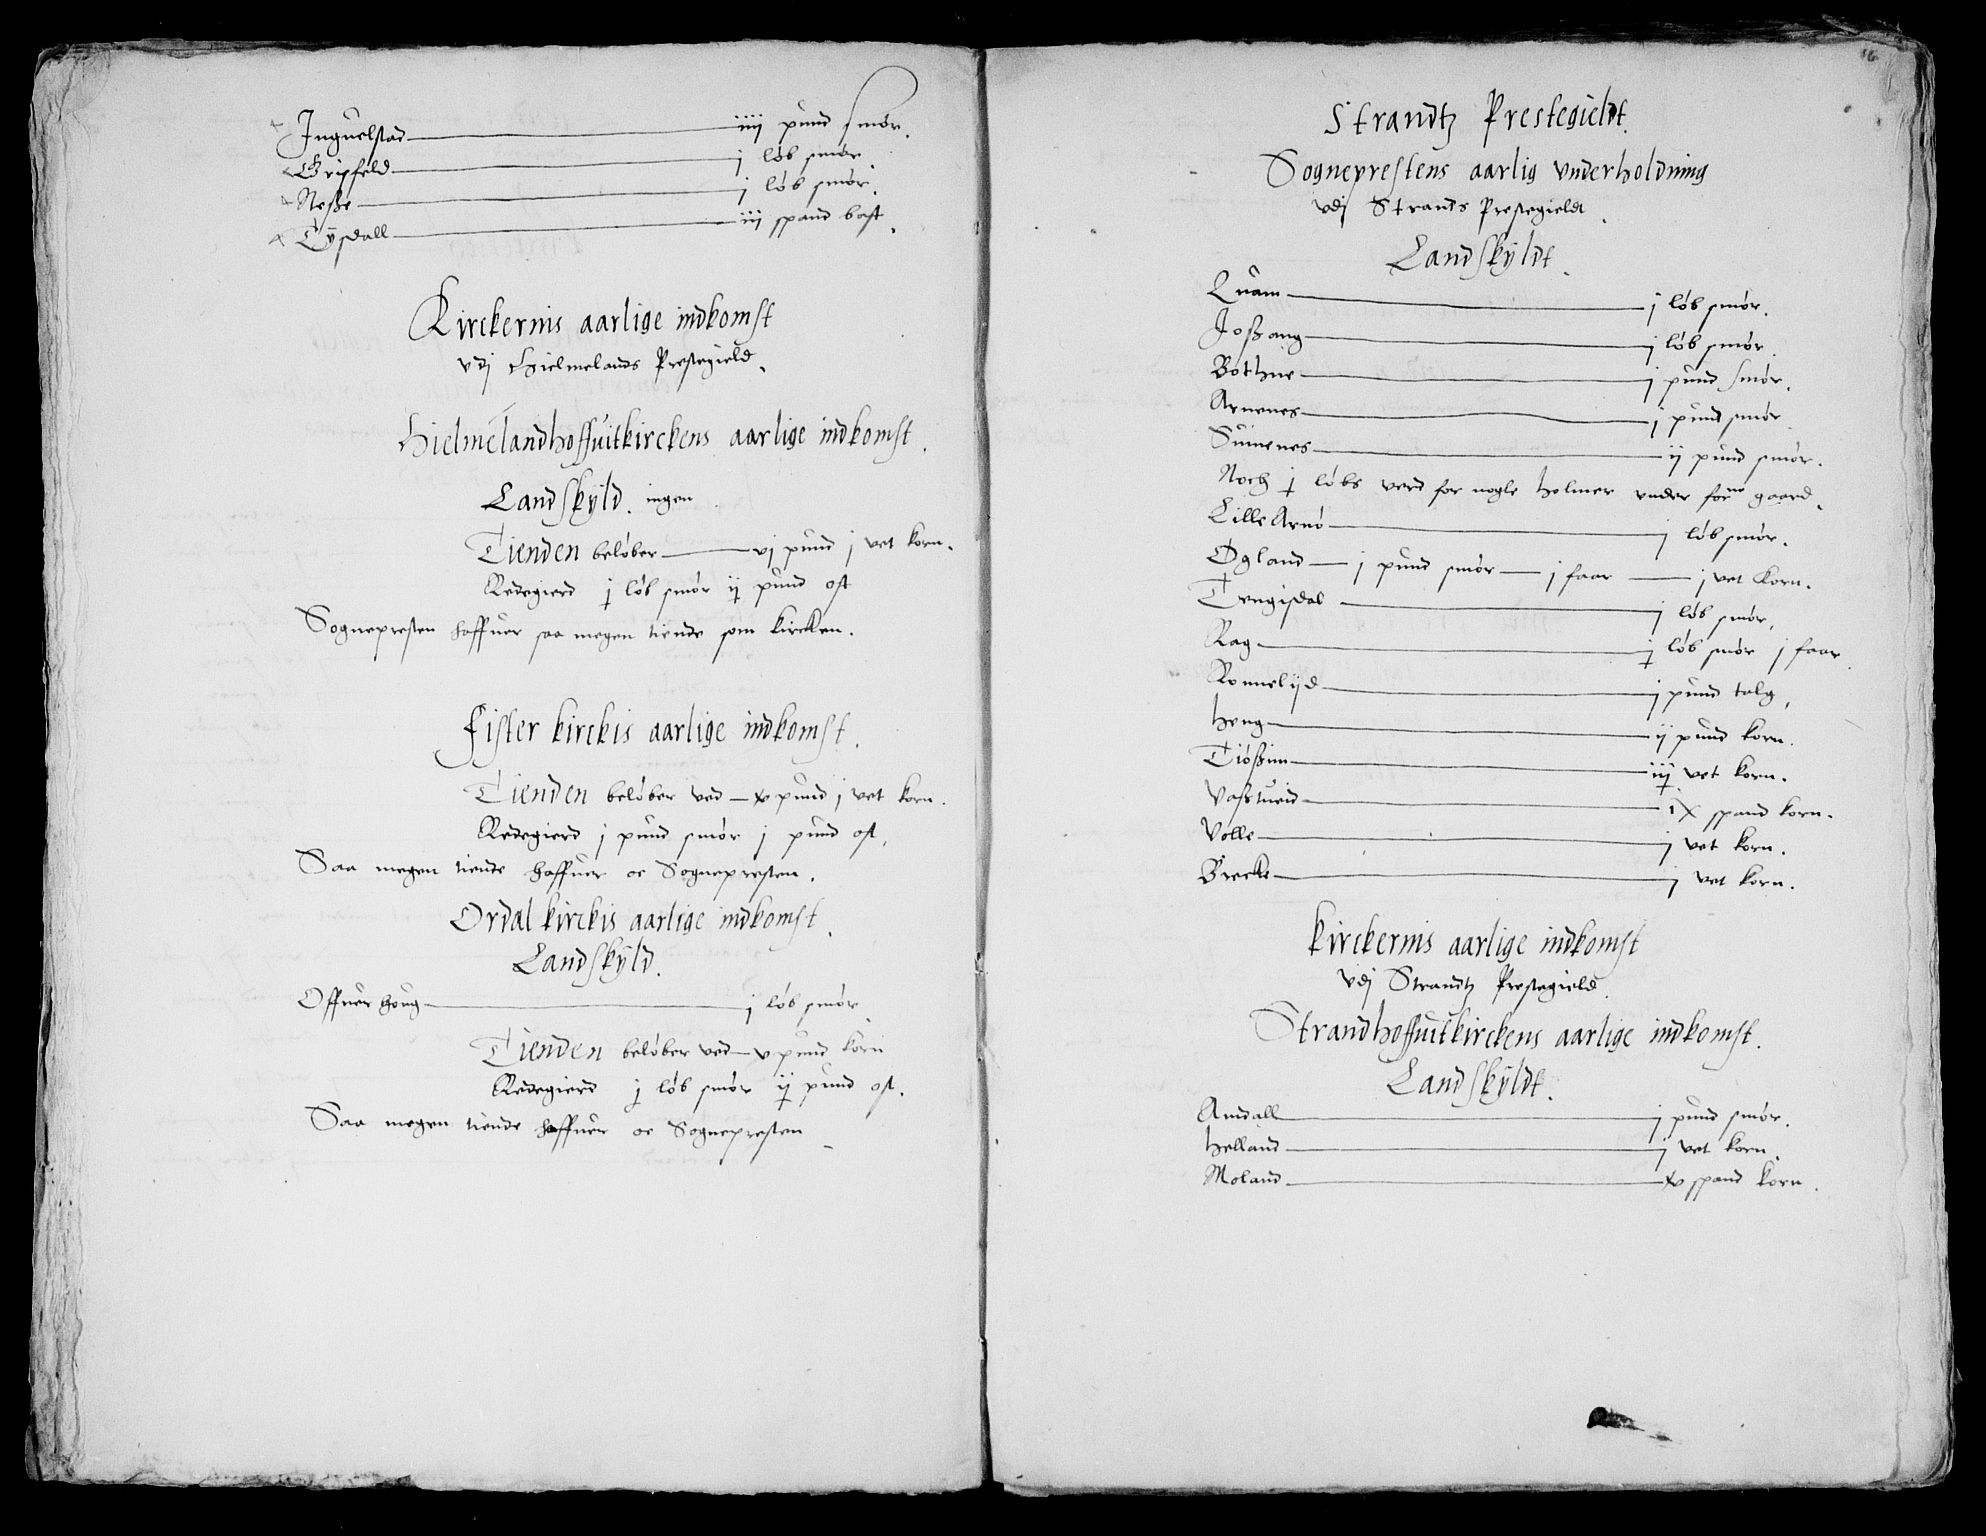 Inguelstad iiij pund smør.
Gripfeld j løb smør.
Neße j løb smør.
Tysdall iij spand bast.
Kirckernis aarlige indkomst
vdj Hielmelands Prestegield.
Hielmelandhoffuitkirckens aarlige indkomst.
Landskyld. ingen
Tienden beløber vj pund j vet korn.
Redegierd j løb smør ij pund ost
Sognepresten haffuer saa megen tiende som kircken.
Fister kirckis aarlige indkomst.
Tienden beløber ved xv pund j vet korn.
Redegierd j pund smør j pund ost.
Saa megen tiende haffuer oc Sognepresten.
Ordal kirckis aarlige indkomst.
Landskyld.
Offuer houg j løb smør.
Tienden beløber ved v pund korn
Redegierd j løb smør ij pund ost.
Saa megen tiende haffuer oc Sognepresten
16
Strandtz Prestegieldt.
Sogneprestens aarlig vnderholdning
vdj Strands Prestegieldt.
Landskyldt.
Quam j løb smør.
Joßang j løb smør.
Bothne j pund smør.
Arnenes j pund smør.
Suinenes ij pund smør.
Noch j løbs verd for nogle holmer vnder forne gaard.
Lille Arnø j løb smør.
Øgland j pund smør j faar j vet korn.
Tengisdal j løb smør.
Rag j løb smør j faar.
Ronnelijd j pund talg.
Heng ij pund korn.
Tiøßim iij vet korn.
Vaßtueid ix spand korn.
Volle j vet korn.
Brecke j vet korn.
Kirckernis aarlige indkomst
vdj Strandtz Prestegield.
Strandhoffuitkirckens aarlige indkomst.
Landskyldt.
Amdall j pund smør.
Helland j vet korn.
Moland xv spand korn.